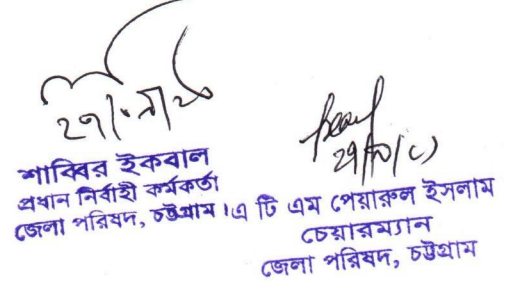 শাব্বির ইকবাল
প্রধান নির্বাহী কর্মকর্তা
জেলা পরিষদ, চট্টগ্রাম।
এ টি এম পেয়ারুল ইসলাম
চেয়ারম্যান
জেলা পরিষদ, চট্টগ্রাম